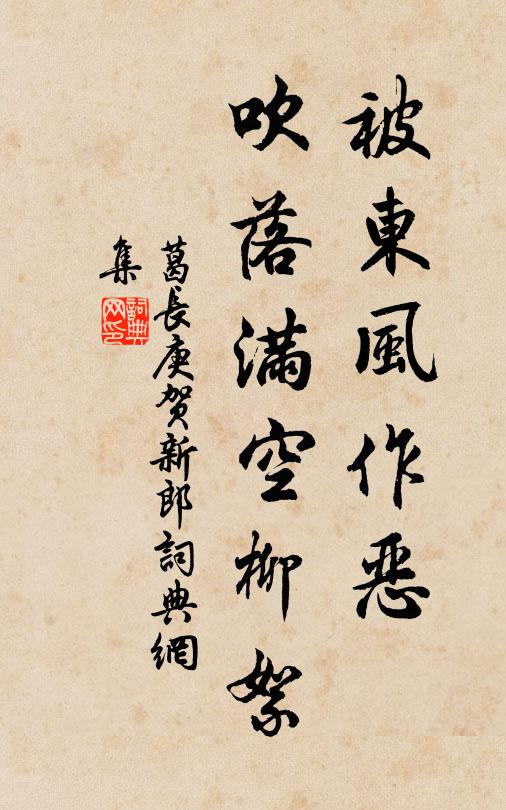 被東風作惡
吹落滿空柳絮
葛長庚賀新郎詞典網
集
詞典
网印